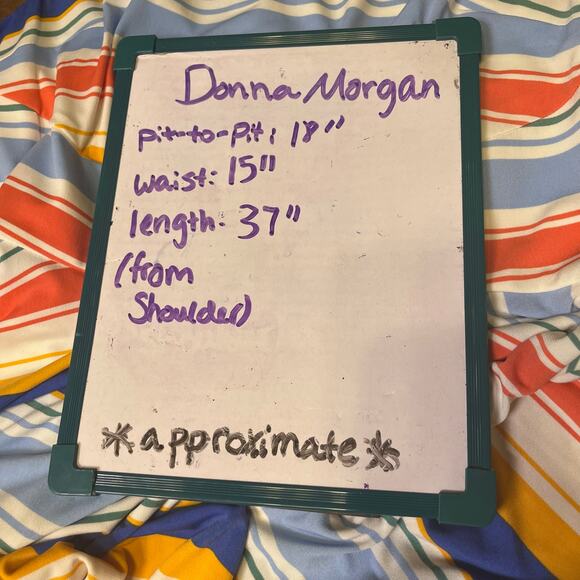 Donna Morgan
pit-to-pit: 18"
waist: 15"
length: 37"
(from
Shoulder)
*approximate*